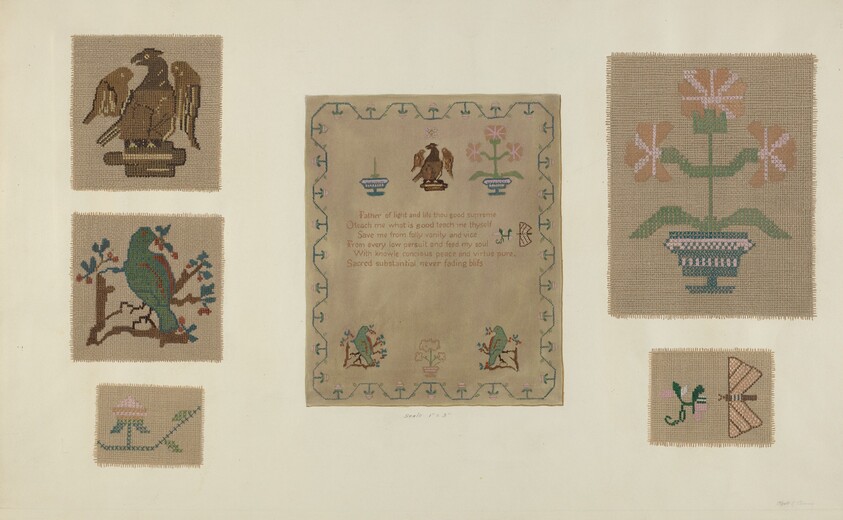 Father of light and life thou good supreme
O teach me what is good teach me thyself
Save me from folly vanity and vice
From every low persuit and feed my soul
With knowle concious peace and virtue pure,
Sacred substantial never fading bliss